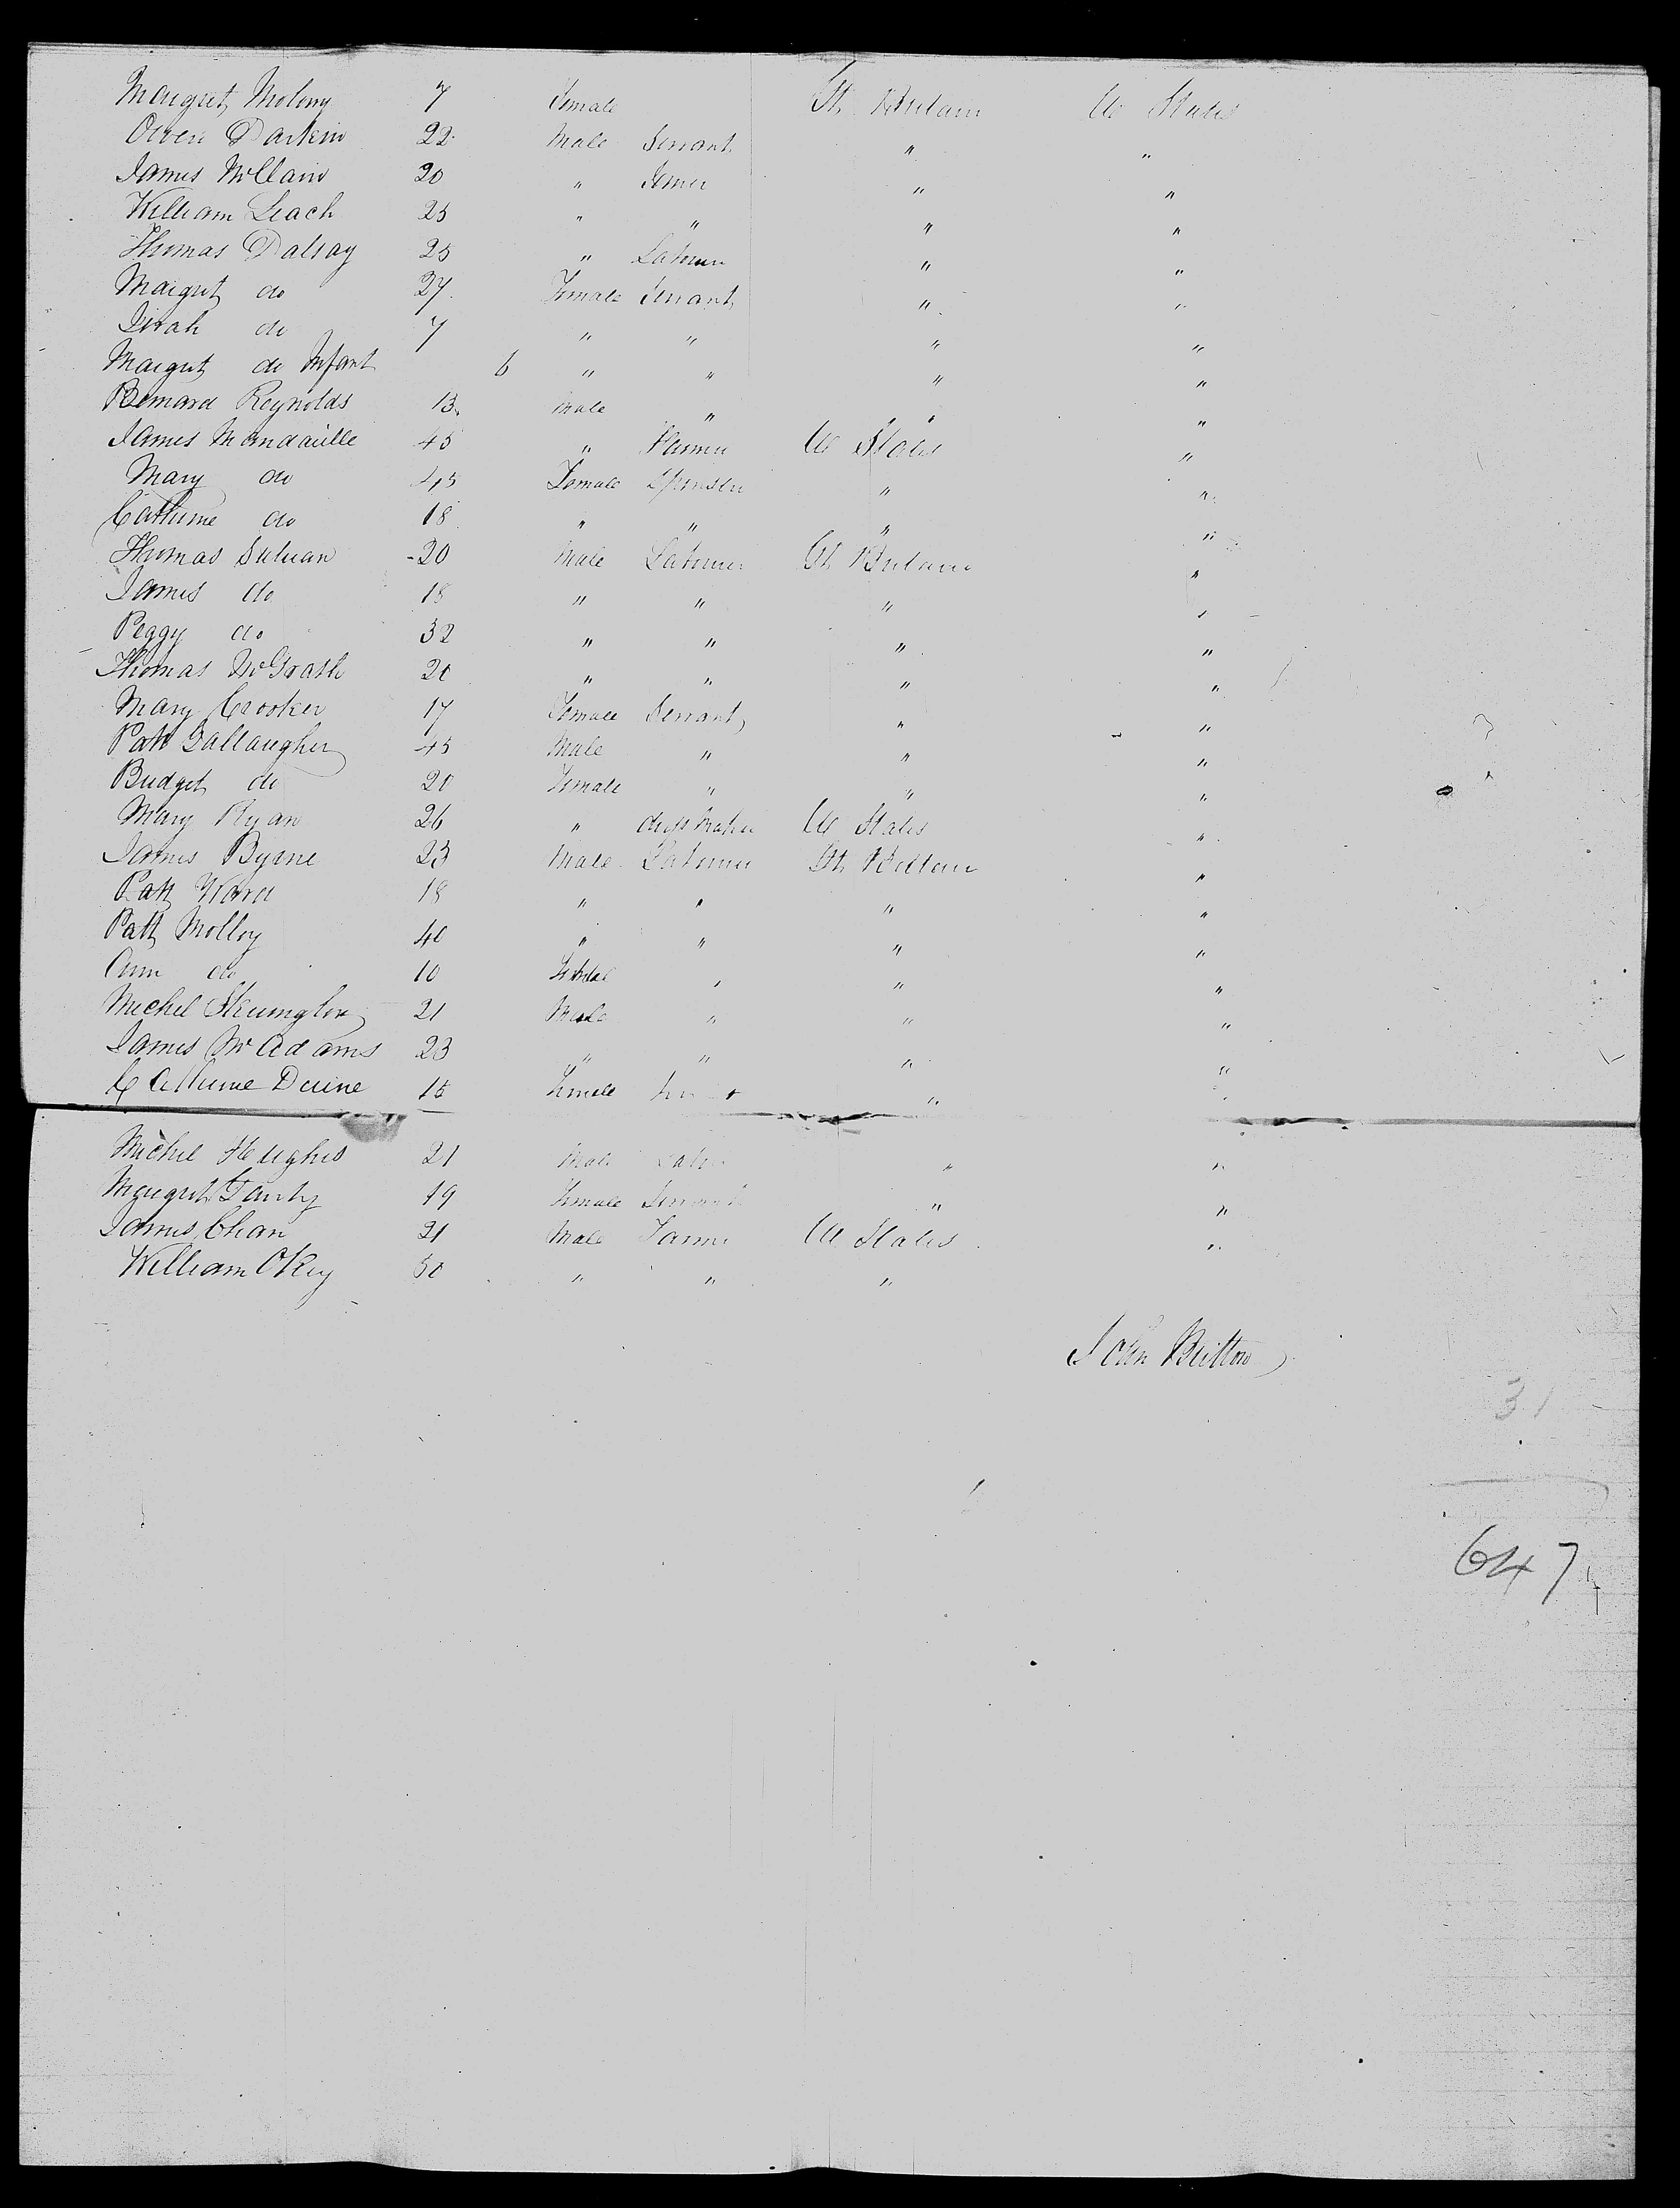 Margret Molony 7 Female Gt Britain U States
Owen Darkin 22 Male Servant " "
James McClain 20 " " "
William Leach 25 " " " "
Thomas Dalray 25 " Labourer " "
Margret do 27 Female Servant " "
do 7 " " " "
Margret do Infant 6 " " " "
Bernard Reynolds 13 Male " " "
James Mandaville 45 " Farmer U States "
Mary do 45 Female Spinster " "
Catherine do 18 " " " "
Thomas Sulivan 20 Male Labourer Gt Britain "
James do 18 " " " "
Peggy do 32 " " " "
Thomas McGrath 20 " " " "
Mary Crooker 17 Female Servant " "
Patt Gallaugher 45 Male " " "
Bridget do 20 Female " " "
Mary Ryan 26 " dress Maker U States "
James Byrne 23 Male Labourer Gt Britain "
Patt Ward 18 " " " "
Patt Molloy 40 " " " "
Ann do 10 Female " " "
Michel 21 Male " " "
James McAdams 23 " " " "
Catherine 15 Female " "
Michel Hughes 21 Male " "
Margret 19 Female Servant " "
James Chan 21 Male Farmer U States "
William OKey 50 " " "
John Britton
31
647